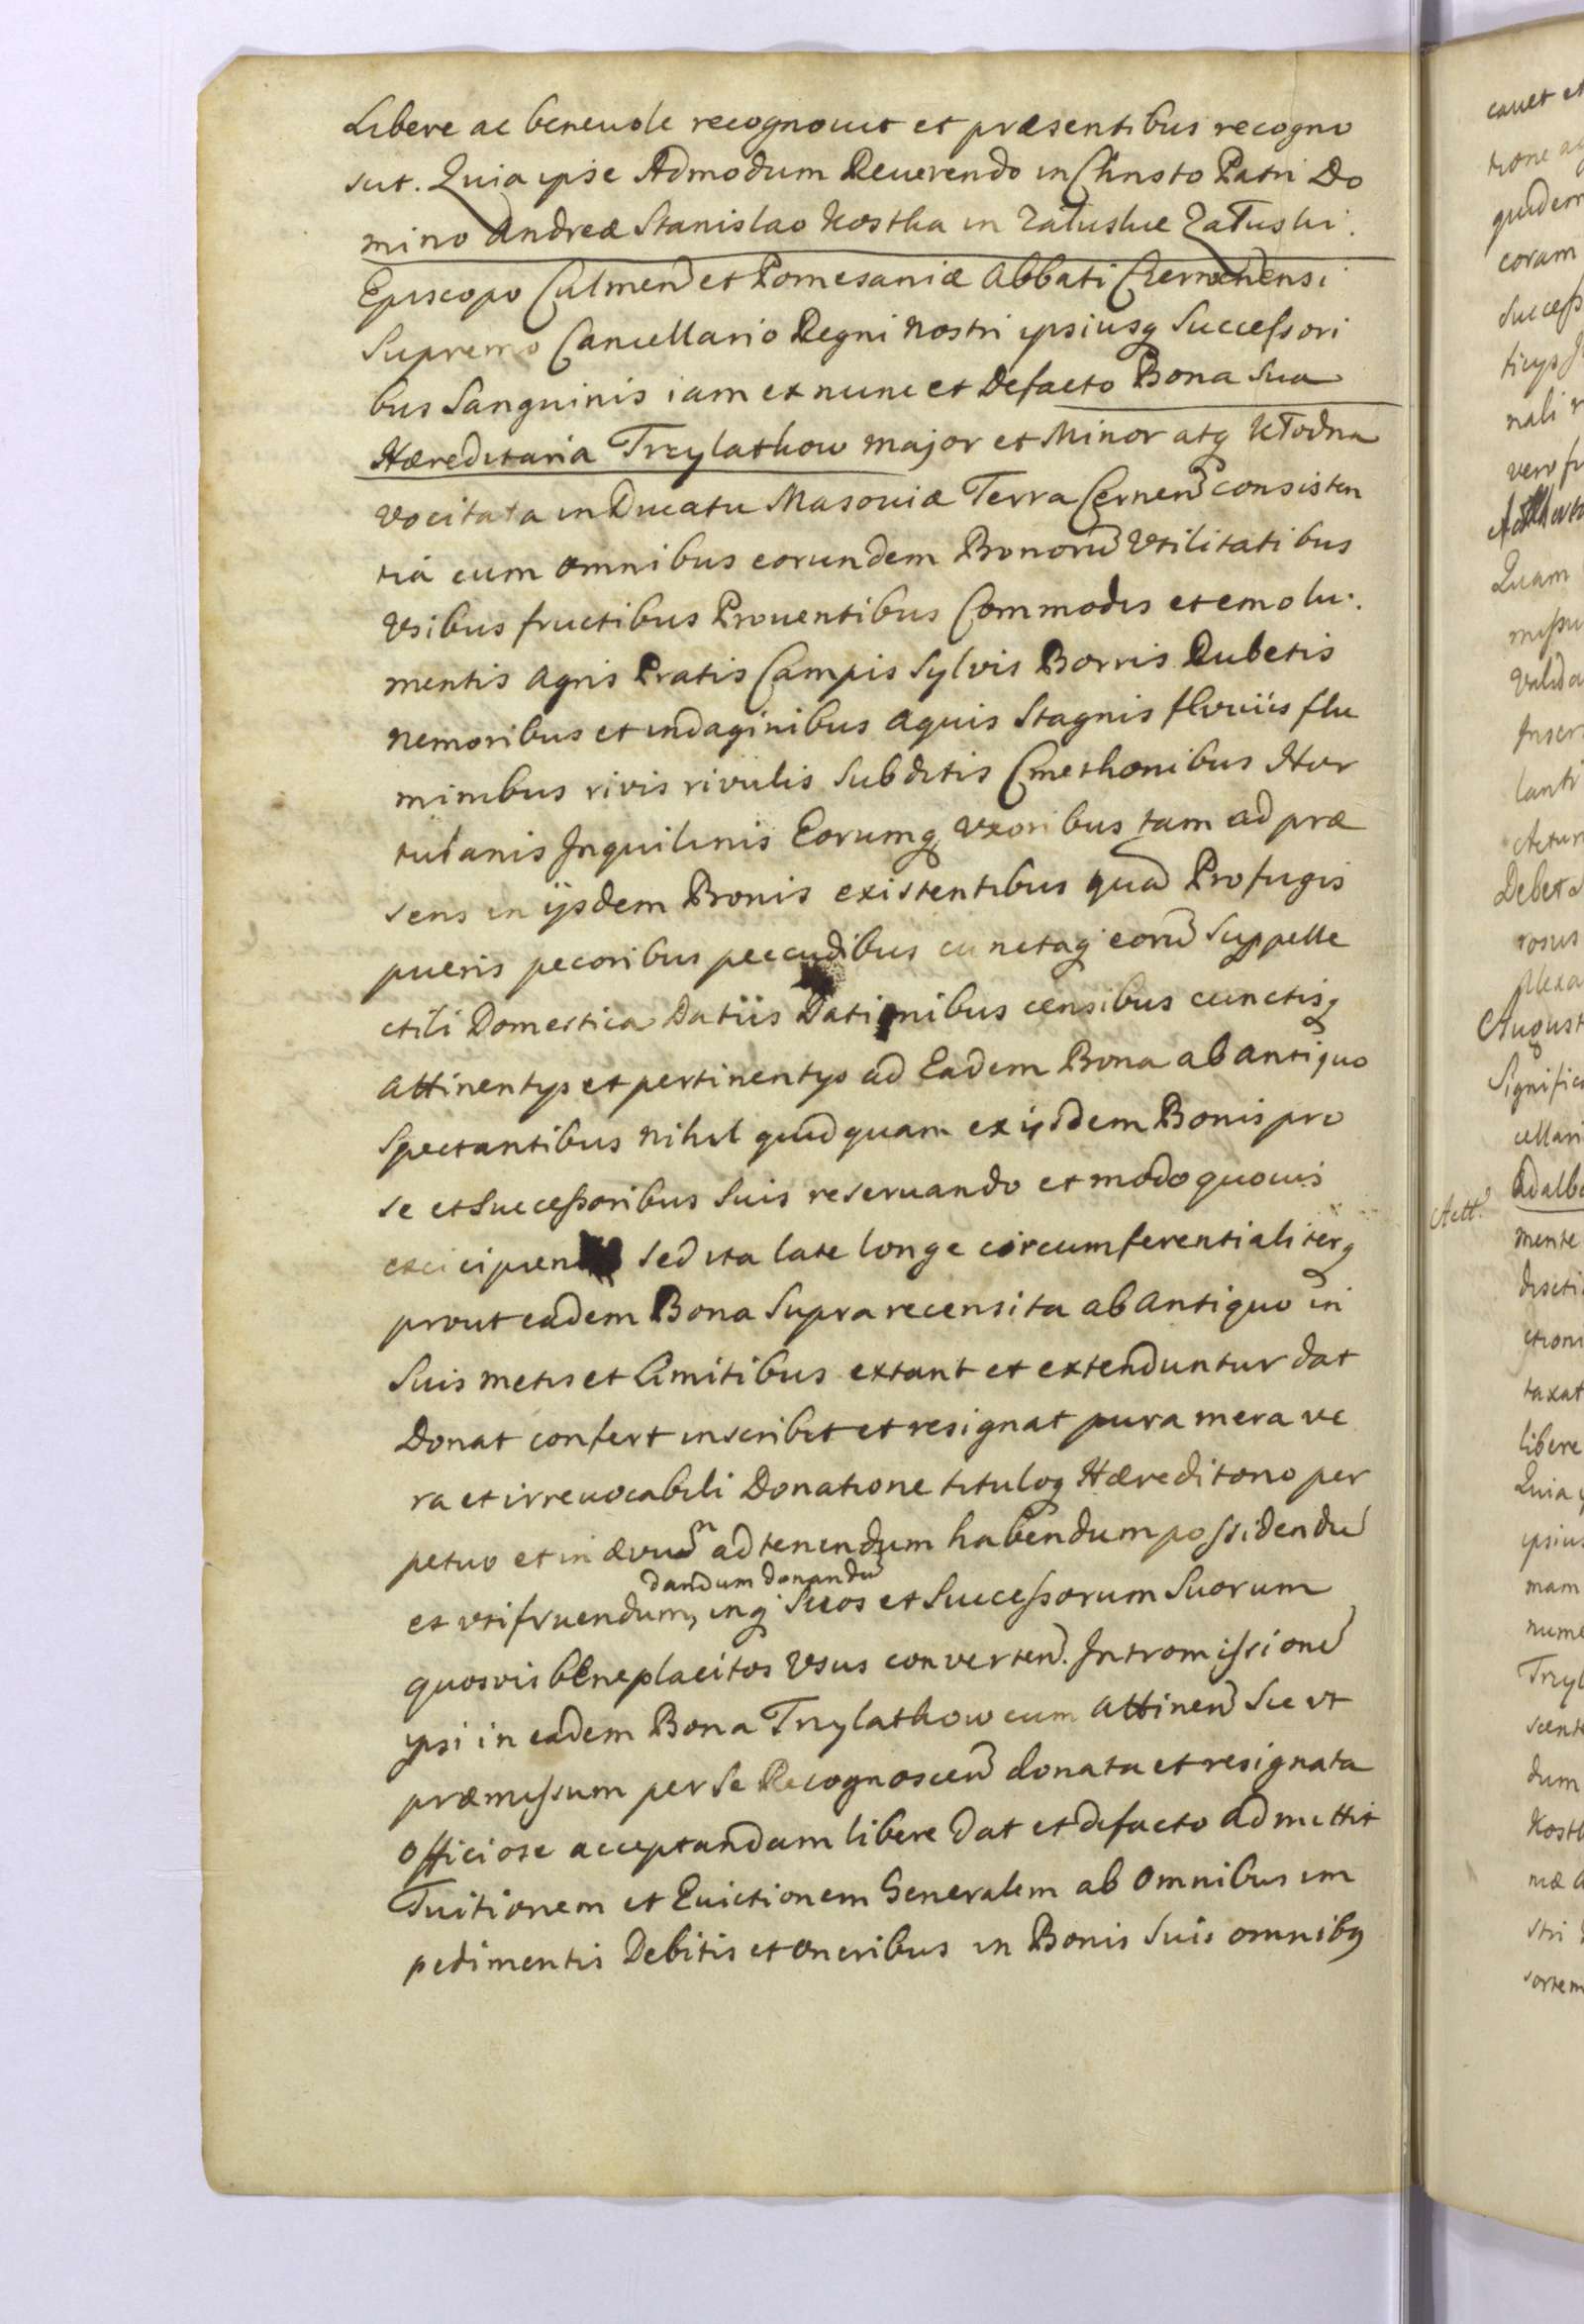 Libere ac beneuole recognouit et præsentibus recogno
scit. Quia ipse Admodum Reuerendo in Christo Patri Do
mino Andreæ Stanislao Kostka in Załuskie Załuski.
Episcopo Culmen et Pomesaniæ Abbati Czerwenensi
Supremo Cancellario Regni Nostri ipsiusq Successori
bus Sanguinis iam ex nunc et Defacto Bona Sua
Hæreditaria Trzylathow major et Minor atq Kłodna
vocitata in Ducatu Masouiæ Terra Cernen consisten
tia cum omnibus eorundem Bonoru Vtilitatibus
Vsibus fructibus Prouentibus Commodis et emolu.
mentis Agris Pratis Campis Sylvis Borris Rubetis
Nemoribus et indaginibus Aquis Stagnis fluviis flu
minibus rivis rivulis Subditis Cmethonibus Hor
tulanis Inquilinis Eorumq Vxoribus tam ad præ
sens in ijsdem Bonis existentibus qua Profugis
pueris pecoribus peccudibus cunctaq eoru Suppelle
ctili Domestica Datiis Dationibus censibus cunctisq
Attinentys et pertinentys ad Eadem Bona ab antiquo
Spectantibus nihil quidquam ex ijsdem Bonis pro
se et Successoribus Suis reseruando et modo quouis
Sed ita late longe circumferentialiterq
prout eadem Bona Supra recensita ab Antiquo in
Suis metis et limitibus extant et extenduntur dat
Donat confert inscribit et resignat pura mera ve
ra et irreuocabili Donatione tituloq Hæreditario per
petuo et in ævum ad tenendum habendum possidendu
dandum donandu
et vtifruendum, inq Suos et Successorum Suorum
quosvis beneplacitos Vsus converten. Intromissione
ipsi in eadem Bona Trzylathow cum Attinen Sic vt
præmissum per Se Recognoscen donata et resignata
Officiose acceptandam libere Dat et defacto admittit
Tuitionem et Euictionem Generalem ab omnibus im
pedimentis Debitis et oneribus in Bonis Suis omnibq